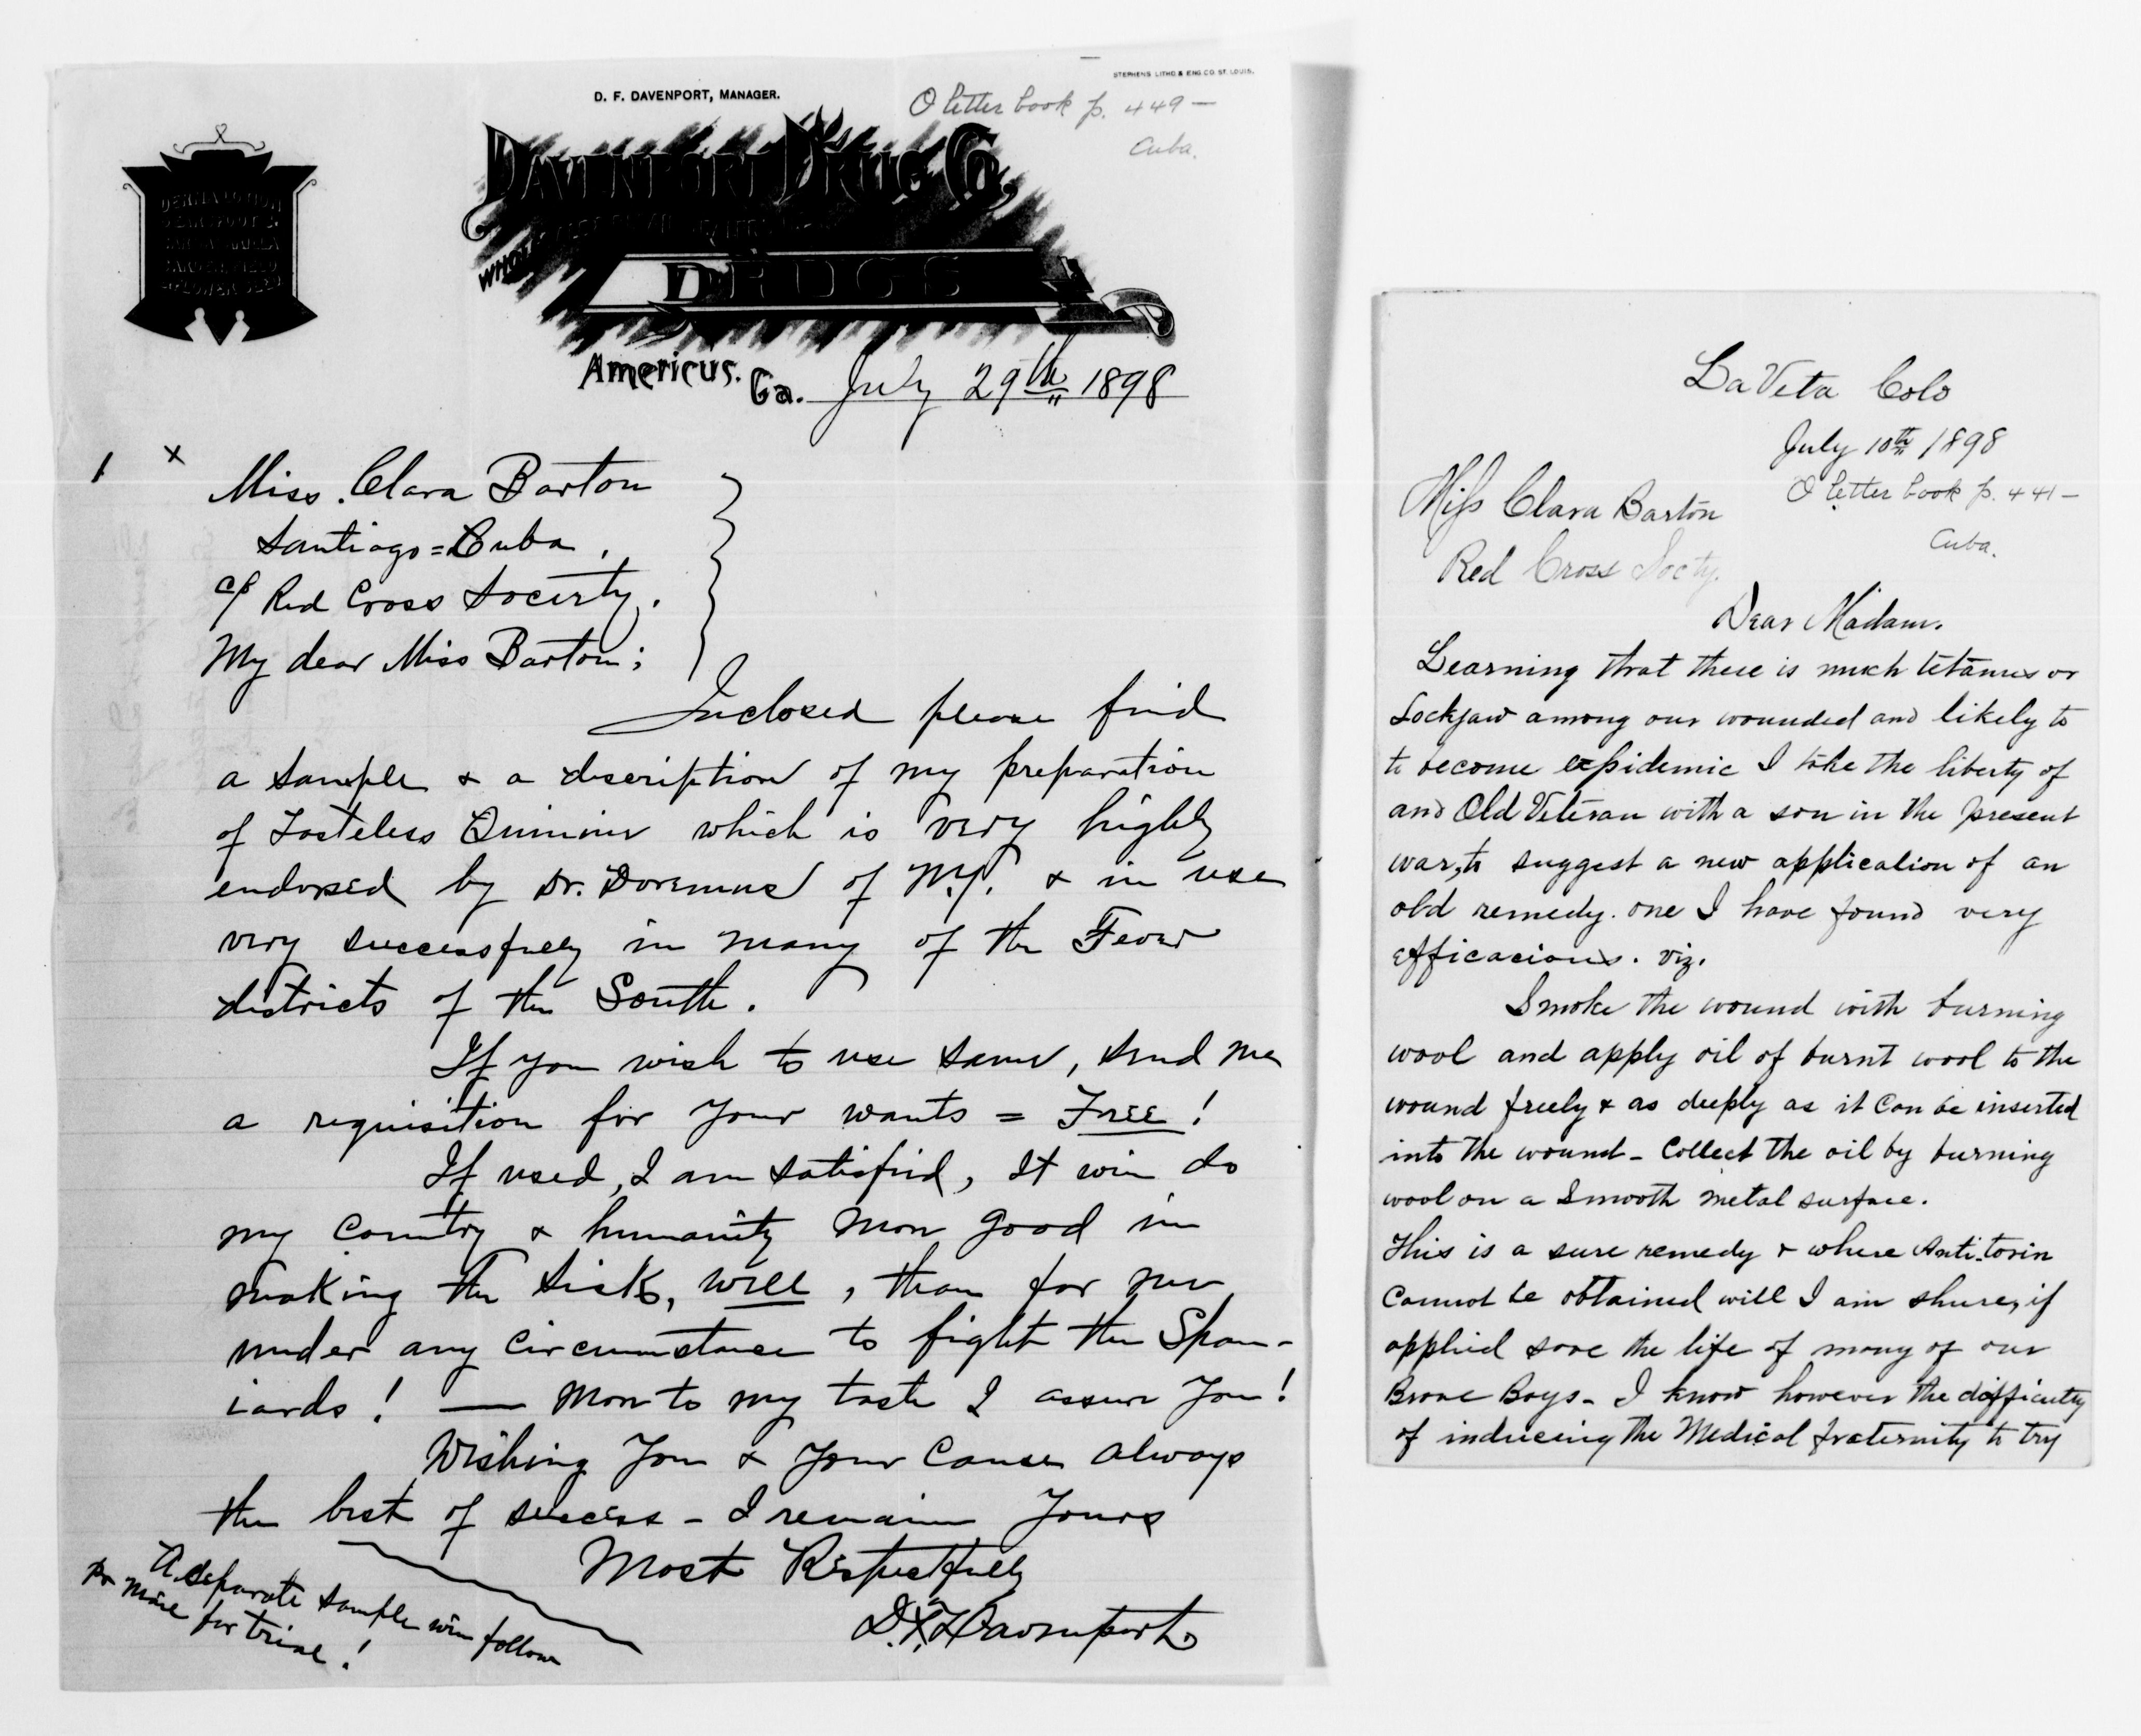 STEPHENS LITHO & ENG CO. ST. LOUIS.
D. F. DAVENPORT, MANAGER.
O letter book p. 449 —
Cuba.
DAVENPORT DRUG CO,
DRUGS
Americus. Ga. July 29th 1898
x
Miss. Clara Barton
Santiago = Cuba.
c/o Red Cross Socirty.
My dear Miss Barton;
Inclosed please find
a sample & a discription of my preparation
of Tasteless Quinine which is very highly
endorsed by Dr. Doremus of N.Y. & in use
very successfully in many of the Fever
districts of the South.
If you wish to use same, send me
a requisition for your wants = Free!
If used, I am satisfied, It will do
my Country & humanity more good in
making the sick, well, than for me
under any circumstance to fight the Span-
iards! — more to my taste I assure you!
Wishing You & Your Cause always
the best of success - I remain Yours
Most Respectfully
D. F. Davenport
A seperate sample will follow
Pr mail for trial!
La Veta Colo
July 10th 1898
O letter book p. 441 —
Cuba.
Miss Clara Barton
Red Cross Socty.
Dear Madam.
Learning that there is much tetanus or
Lockjaw among our wounded and likely to
to become expidemic I take the liberty of
and Old Veteran with a son in the present
war, to suggest a new application of an
old remedy. one I have found very
efficacious. viz.
Smoke the wound with burning
wool and apply oil of burnt wool to the
wound freely & as deeply as it can be inserted
into the wound - Collect the oil by burning
wool on a smooth metal surface.
This is a sure remedy & where Anti-toxin
cannot be obtained will I am shure, if
applied save the life of many of our
Brave Boys - I know however the difficulty
of inducing the Medical fraternity to try